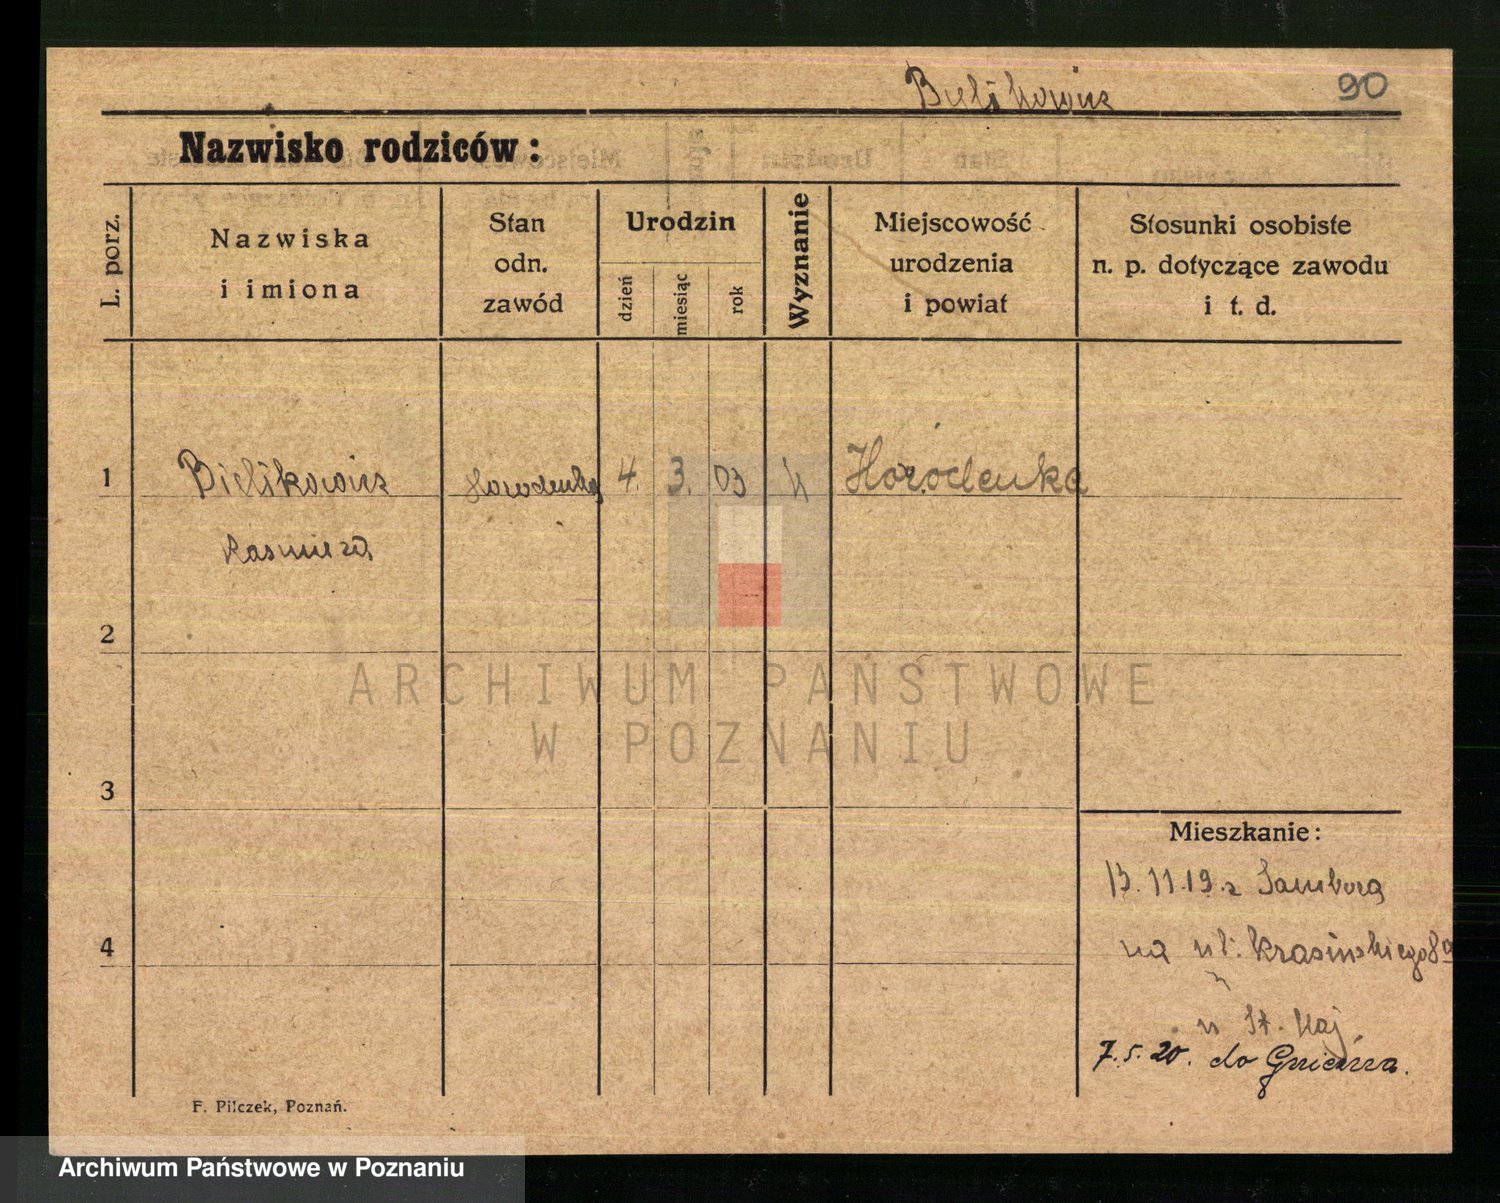 Bielikowicz 90
Nazwisko rodziców:
L. porz.
Nazwiska
i imiona
Stan
odn.
zawód
Urodzin
dzień
miesiąc
rok
Wyznanie
Miejscowość
urodzenia
i powiat
Stosunki osobiste
n. p. dotyczące zawodu
i t. d.
1 Bielikowicz 4. 3. 03 Horodenka
2
3
4
Mieszkanie:
13.11.19. z Sambora
na ul. Krasińskiego 8a
7.5.20. do Gniezna.
F. Pilczek, Poznań.
ARCHIWUM PAŃSTWOWE
W POZNANIU
Archiwum Państwowe w Poznaniu